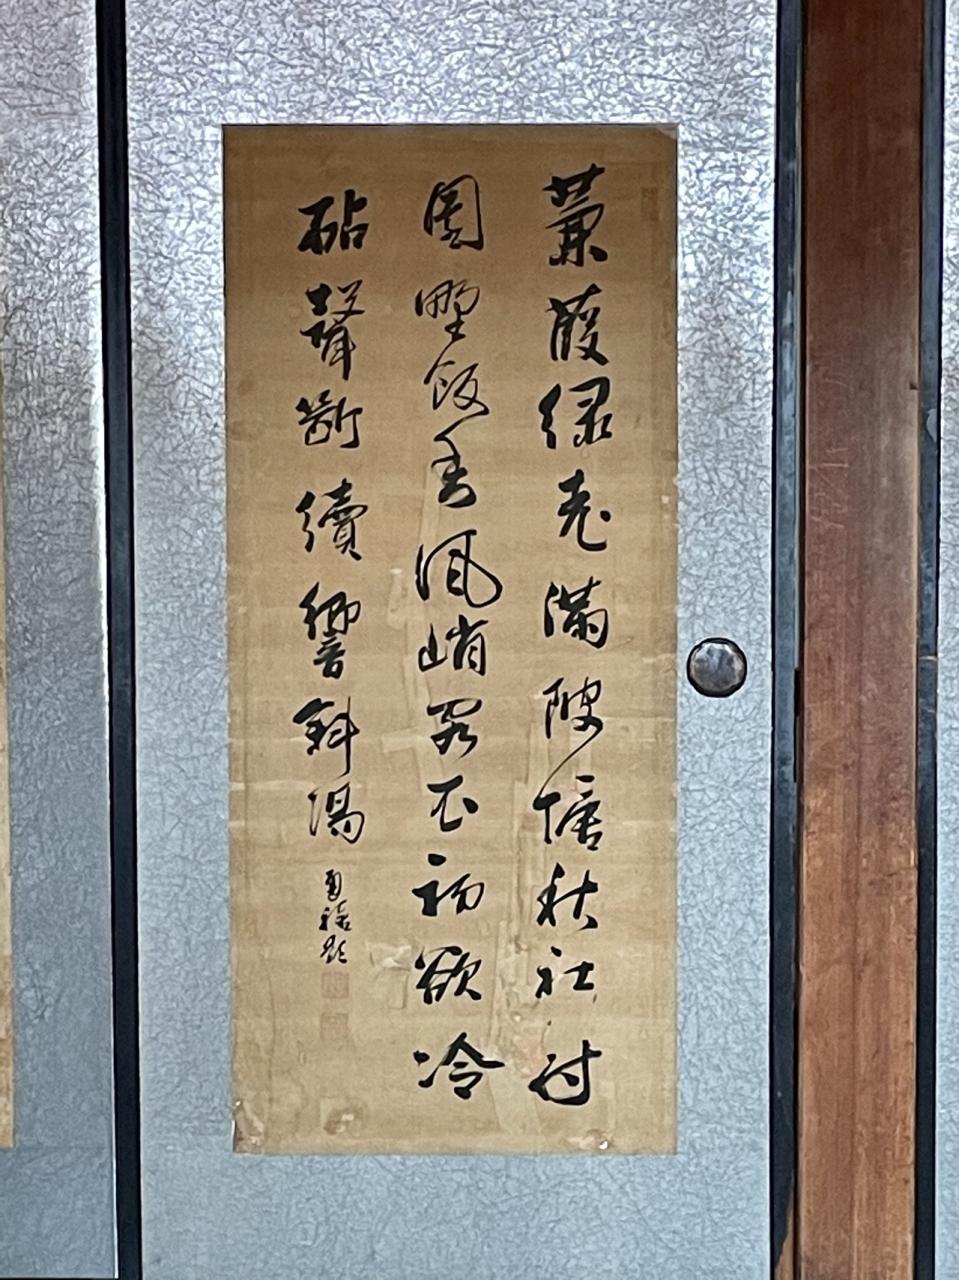 蒹葭緑老滿陂塘秋社村
園野飯香風峭客衣初欲冷
砧聲斷續響斜陽